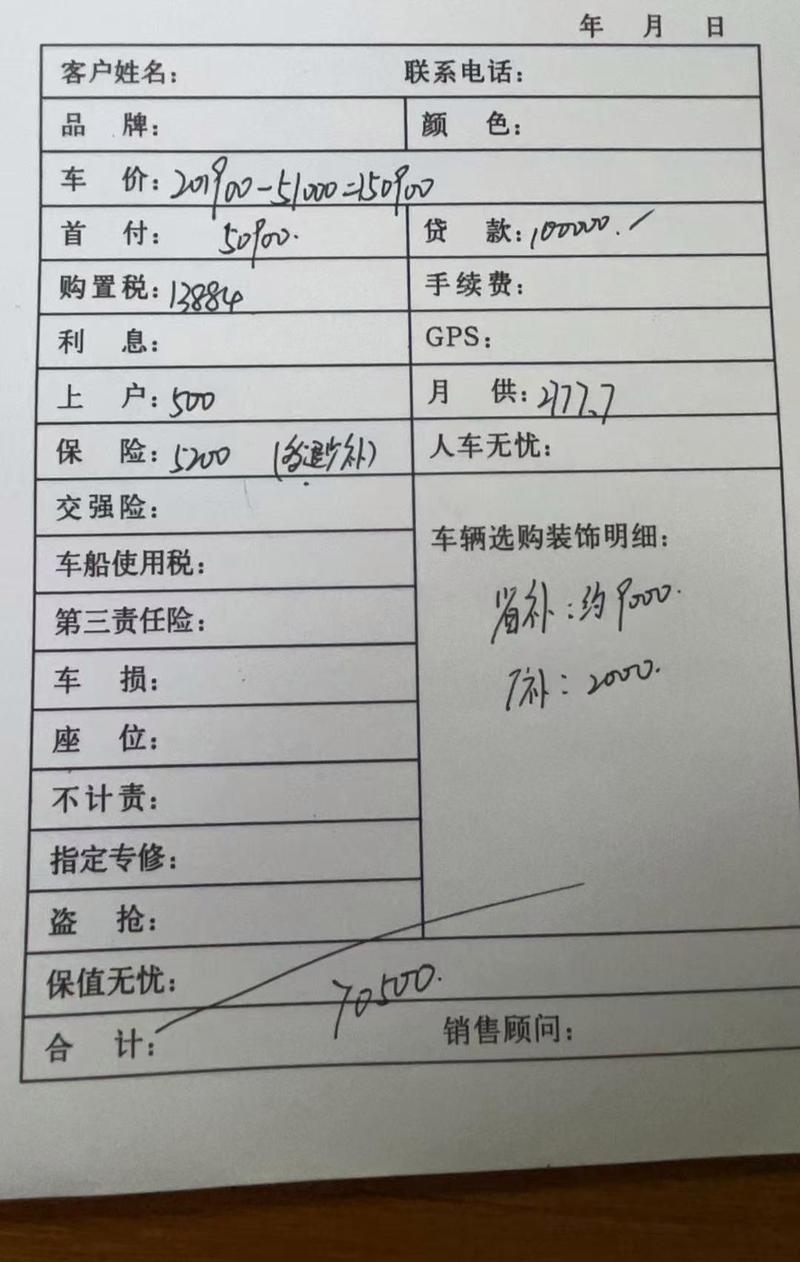 年 月 日
客户姓名: 联系电话:
品 牌: 颜 色:
车 价: 201900-51000=150900
首 付: 50900. 贷 款: 100000.
购置税: 13884 手续费:
利 息: GPS:
上 户: 500 月 供: 2177.7
保 险: 5200 (多退少补) 人车无忧:
交强险:
车辆选购装饰明细:
车船使用税:
省补: 约9000.
第三责任险:
厂补: 2000.
车 损:
座 位:
不计责:
指定专修:
盗 抢:
保值无忧:
70500.
合 计: 销售顾问: